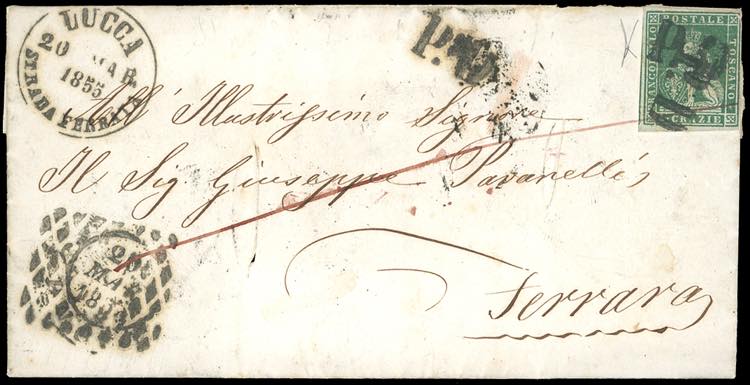 LUCCA
20 MAR.
1855
STRADA FERRATA
P.D.
P.D.
FRANCOBOLLO
POSTALE
TOSCANO
CRAZIE
All' Illustrissimo Signore
Il Sig Giuseppe Pavanelli
Ferrara
20
MAR